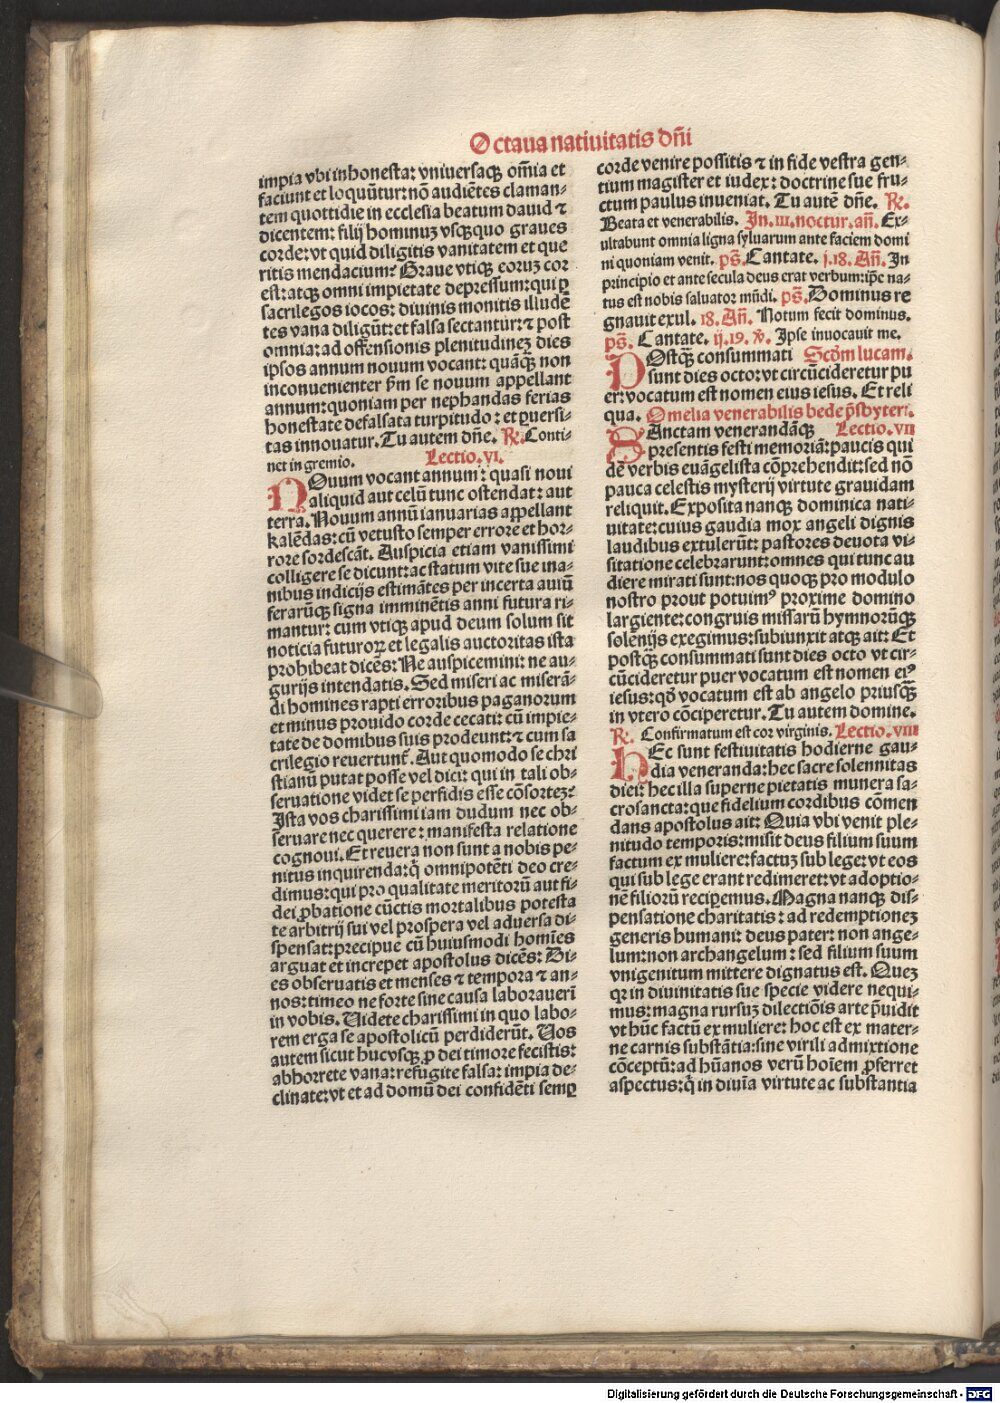 Octaua natiuitatis dñi
impia vbi inhonesta: vniuersaqꝫ om̄ia et
faciunt et loquūtur: nō audiētes claman-
tem quottidie in ecclesia beatum dauid ⁊
dicentem: filij hominuꝫ vsqꝫquo graues
corde: vt quid diligitis vanitatem et que
ritis mendacium? Graue vtiqꝫ eoruꝫ cor
est: atqꝫ omni impietate depressum: qui ꝑ
sacrilegos iocos: diuinis monitis illudē
tes vana diligūt: et falsa sectantur: ⁊ post
omnia: ad offensionis plenitudineꝫ dies
ipsos annum nouum vocant: quāqꝫ non
inconuenienter ꝓm se nouum appellant
annum: quoniam per nephandas ferias
honestate defalsata turpitudo: et ꝑuersi-
tas innouatur. Tu autem dñe. R̷. Conti-
net in gremio. Lectio. vi.
NOuum vocant annum: quasi noui
aliquid aut celū tunc ostendat: aut
terra. Nouum annū ianuarias appellant
kalēdas: cū vetusto semper errore et hor-
rore sordescāt. Auspicia etiam vanissimi
colligere se dicunt: ac statum vite sue ina-
nibus indicijs estimātes per incerta auiū
ferarūqꝫ signa imminētis anni futura ri-
mantur: cum vtiqꝫ apud deum solum sit
noticia futuroꝝ et legalis auctoritas ista
prohibeat dicēs: Ne auspicemini: ne au-
gurijs intendatis. Sed miseri ac miserā-
di homines rapti erroribus paganorum
et minus prouido corde cecati: cū impie-
tate de domibus suis prodeunt: ⁊ cum sa
crilegio reuertunt̄. Aut quomodo se chri
stianū putat posse vel dici: qui in tali ob-
seruatione videt se perfidis esse cōsortez?
Ista vos charissimi iam dudum nec ob-
seruare nec querere: manifesta relatione
cognoui. Et reuera non sunt a nobis pe-
nitus inquirenda: q̄ omnipotēti deo cre-
dimus: qui pro qualitate meritorū aut fi-
dei ꝓbatione cūctis mortalibus potesta
te arbitrij sui vel prospera vel aduersa di-
spensat: precipue cū huiusmodi homīes
arguat et increpet apostolus dicēs: Di-
es obseruatis et menses ⁊ tempora ⁊ an-
nos: timeo ne forte sine causa laborauerī
in vobis. Videte charissimi in quo labo-
rem erga se apostolicū perdiderūt. Vos
autem sicut hucvsqꝫ ꝓ dei timore fecistis:
abhorrete vana: refugite falsa: impia de-
clinate: vt et ad domū dei confidēti semꝑ
corde venire possitis ⁊ in fide vestra gen-
tium magister et iudex: doctrine sue fru-
ctum paulus inueniat. Tu autē dñe. R̷.
Beata et venerabilis. In. iii. noctur. añ. Ex-
ultabunt omnia ligna syluarum ante faciem domi
ni quoniam venit. ps̄. Cantate. j. 18. Añ. In
principio et ante secula deus erat verbum: ip̄e na-
tus est nobis saluator mūdi. ps̄. Dominus re
gnauit exul. 18. Añ. Notum fecit dominus.
ps̄. Cantate. ij. 19. ꝟ. Ipse inuocauit me.
POstqꝫ consummati Scd̄m lucam.
sunt dies octo: vt circūcideretur pu
er: vocatum est nomen eius iesus. Et reli
qua. Omelia venerabilis bede p̄sbyteri.
SAnctam venerandāqꝫ Lectio. vii
presentis festi memoriā: paucis qui
dē verbis euāgelista cōprehendit: sed nō
pauca celestis mysterij virtute grauidam
reliquit. Exposita nanqꝫ dominica nati-
uitate: cuius gaudia mox angeli dignis
laudibus extulerūt: pastores deuota vi-
sitatione celebrarunt: omnes qui tunc au
diere mirati sunt: nos quoqꝫ pro modulo
nostro prout potuimꝰ proxime domino
largiente: congruis missarū hymnorūqꝫ
solēnijs exegimus: subiunxit atqꝫ ait: Et
postqꝫ consummati sunt dies octo vt cir-
cūcideretur puer vocatum est nomen eiꝰ
iesus: qđ vocatum est ab angelo priusqꝫ
in vtero cōciperetur. Tu autem domine.
R̷. Confirmatum est cor virginis. Lectio. viii
HEc sunt festiuitatis hodierne gau-
dia veneranda: hec sacre solennitas
diei: hec illa superne pietatis munera sa-
crosancta: que fidelium cordibus cōmen
dans apostolus ait: Quia vbi venit ple-
nitudo temporis: misit deus filium suum
factum ex muliere: factuꝫ sub lege: vt eos
qui sub lege erant redimeret: vt adoptio-
nē filiorū reciperemus. Magna nanqꝫ dis-
pensatione charitatis: ad redemptioneꝫ
generis humani: deus pater: non ange-
lum: non archangelum: sed filium suum
vnigenitum mittere dignatus est. Queꝫ
qꝛ in diuinitatis sue specie videre nequi-
mus: magna rursuꝫ dilectiōis arte p̄uidit
vt hūc factū ex muliere: hoc est ex mater-
ne carnis substātia: sine virili admixtione
cōceptū: ad hūanos verū hoīem ꝓferret
aspectus: q̄ in diuīa virtute ac substantia
Digitalisierung gefördert durch die Deutsche Forschungsgemeinschaft - DFG